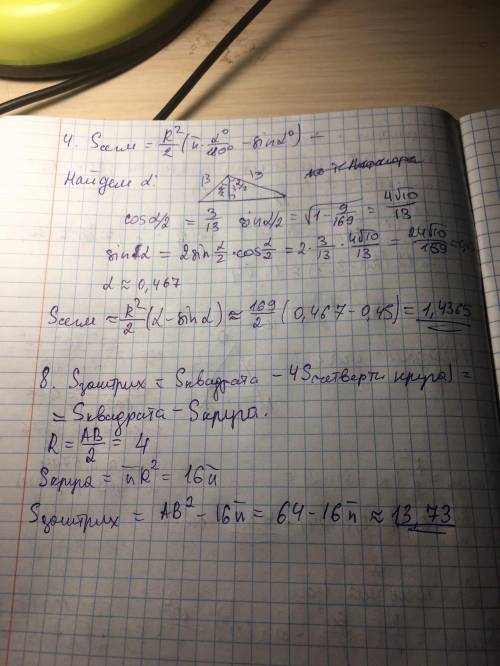 4. Sсегм = R²/2 (π · α°/180° − sin α°) =
Найдем α:
13 13
cos α/2 = 3/13 sin α/2 = √(1 − 9/169) = 4√10/13
sin α = 2 sin α/2 · cos α/2 = 2 · 3/13 · 4√10/13 = 24√10/169
α ≈ 0,467
Sсегм = R²/2 (α − sin α) ≈ 169/2 (0,467 − 0,45) = 1,4365
8. Sзаштрих = Sквадрата − 4S(четверти круга) =
= Sквадрата − Sкруга.
R = AB/2 = 4
Sкруга = πR² = 16π
Sзаштрих = AB² − 16π = 64 − 16π ≈ 13,73